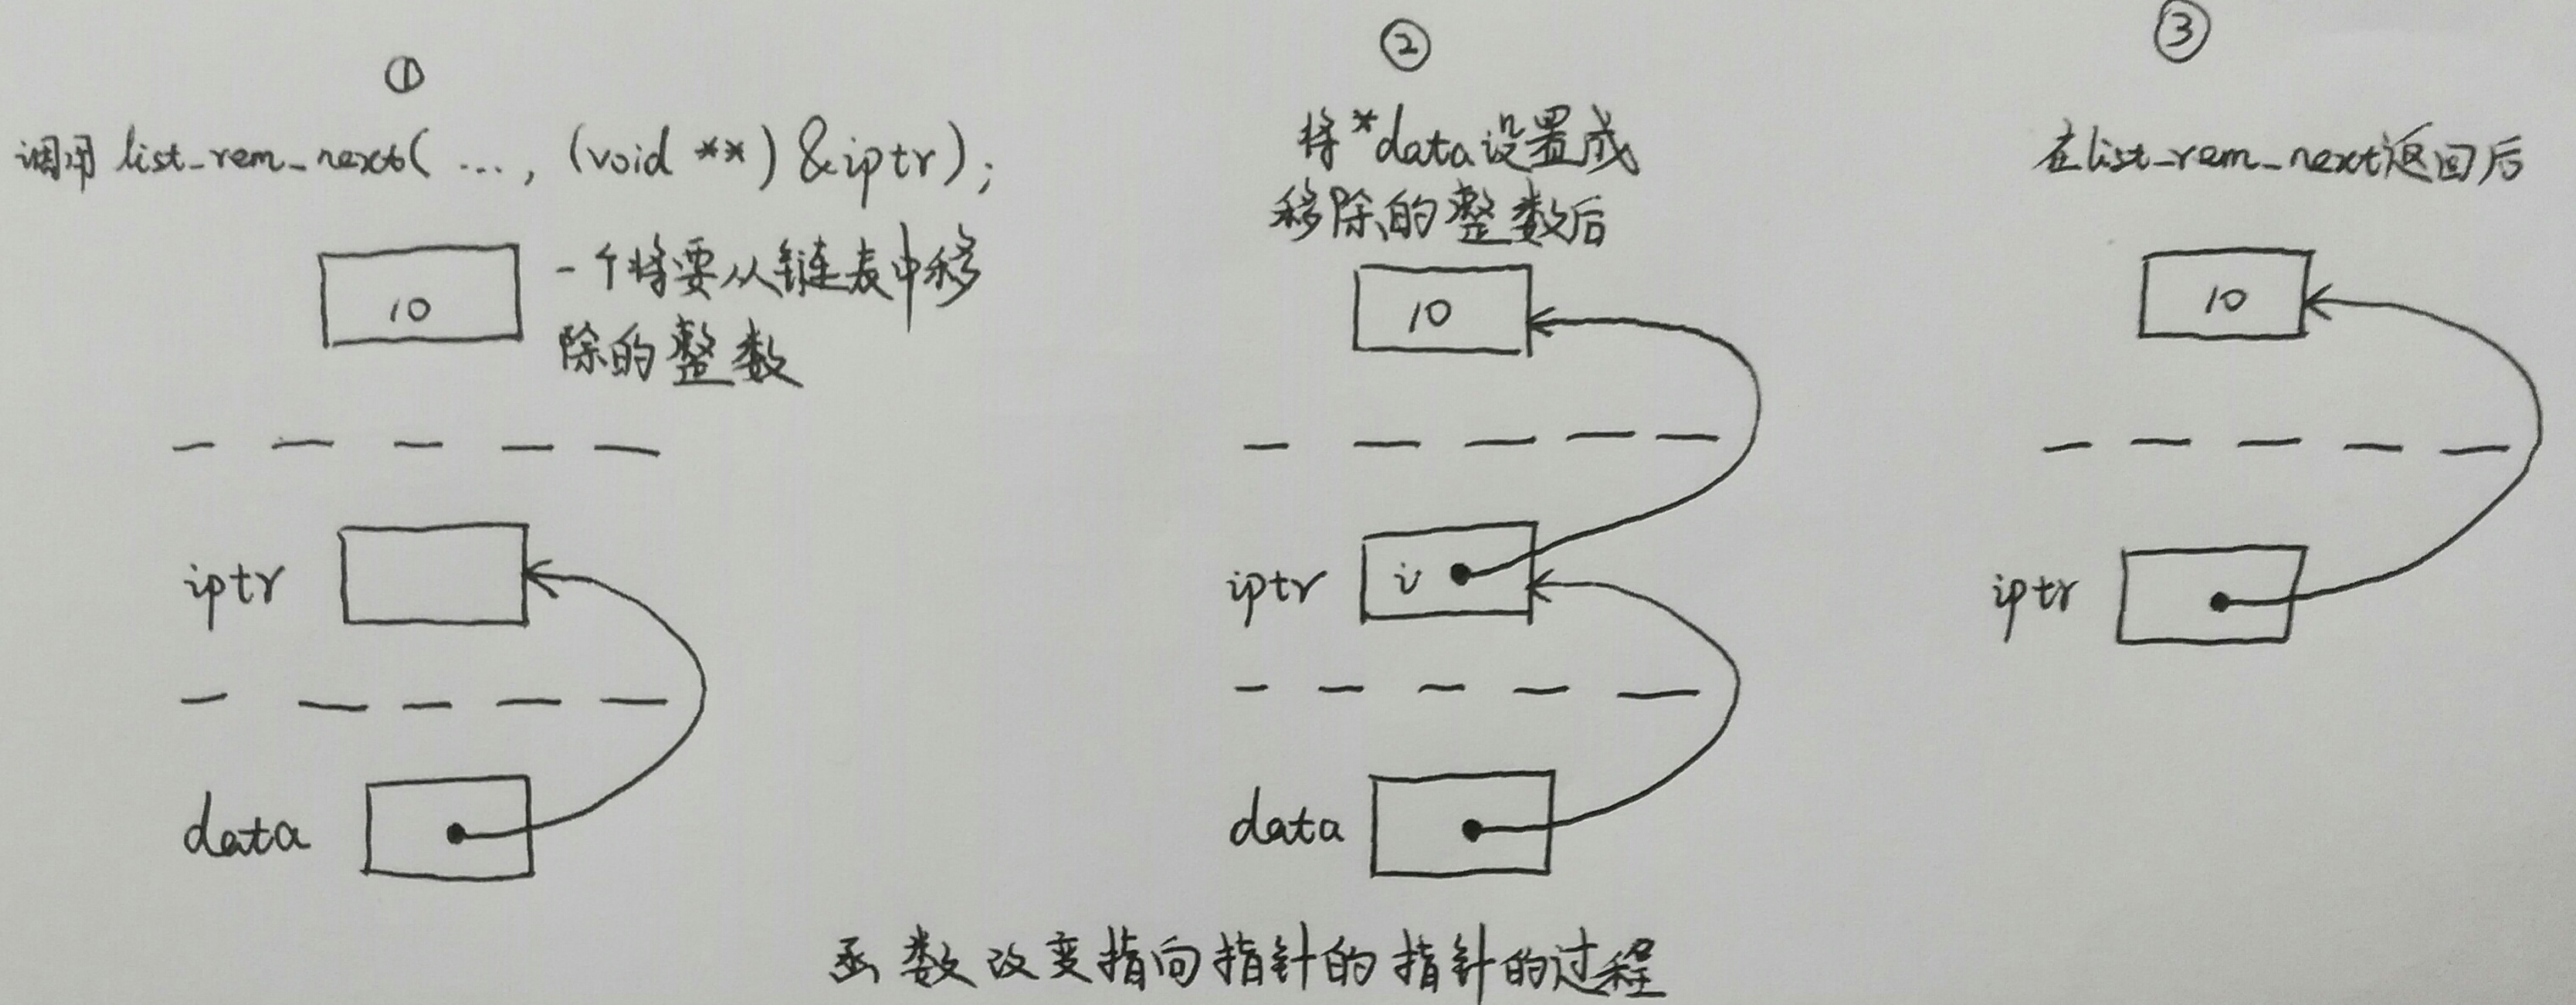 ①
调用 list_rem_next( ..., (void **) &iptr);
10
一个将要从链表中移
除的整数
iptr
data
②
将*data设置成
移除的整数后
10
iptr
i
data
③
在list_rem_next返回后
10
iptr
函数改变指向指针的指针的过程